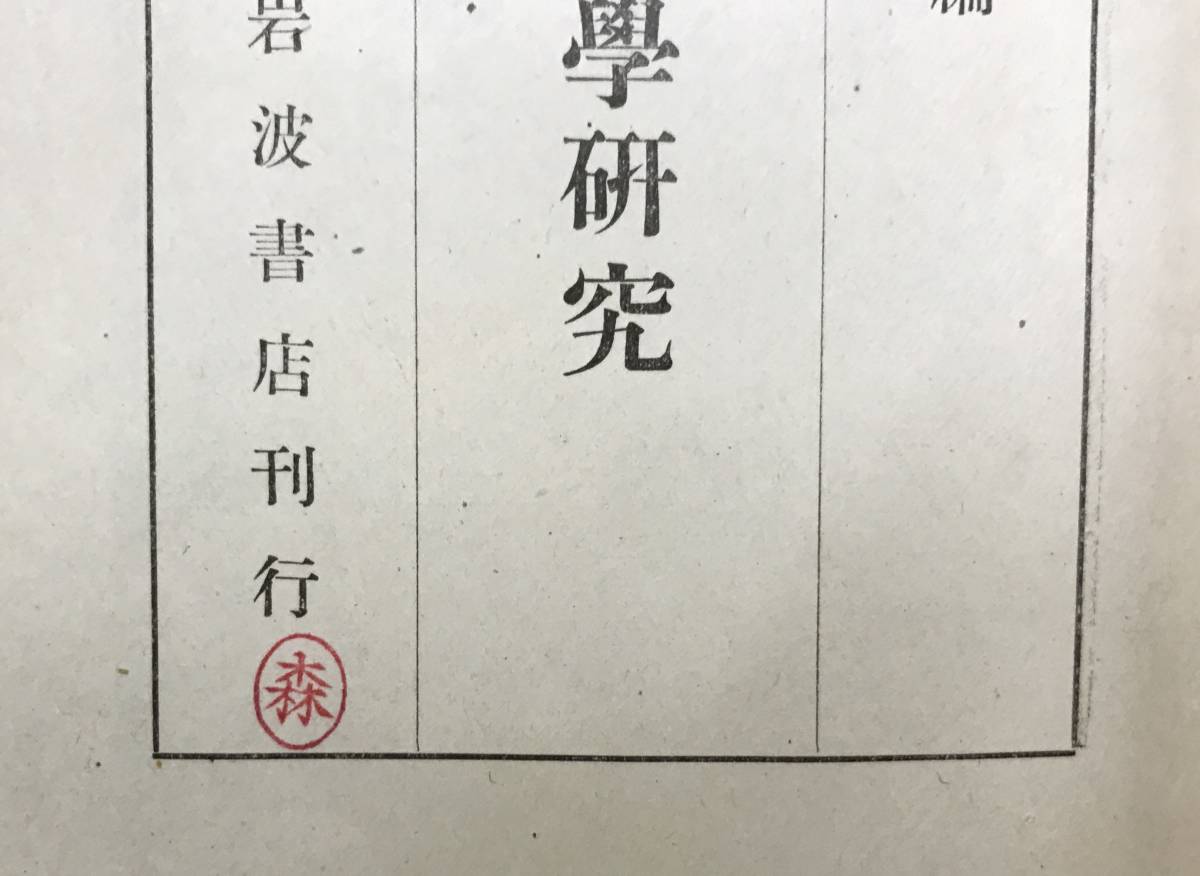 編
學研究
岩波書店刊行
森